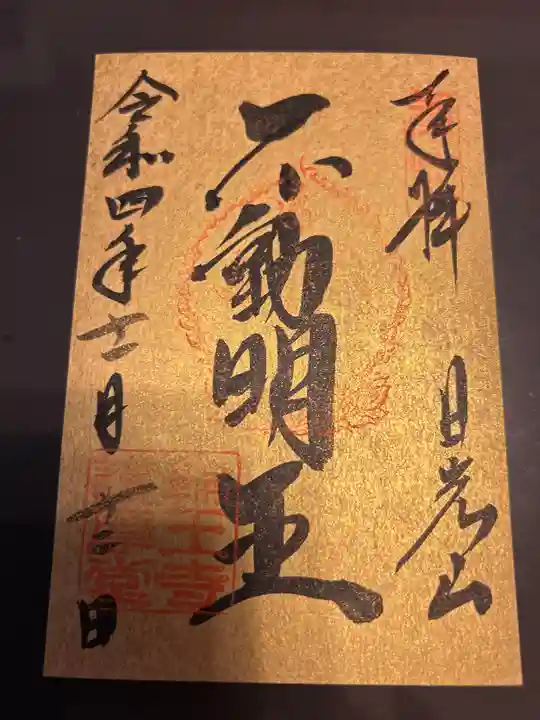 奉拝
日光山
不動明王
令和四年十一月十二日